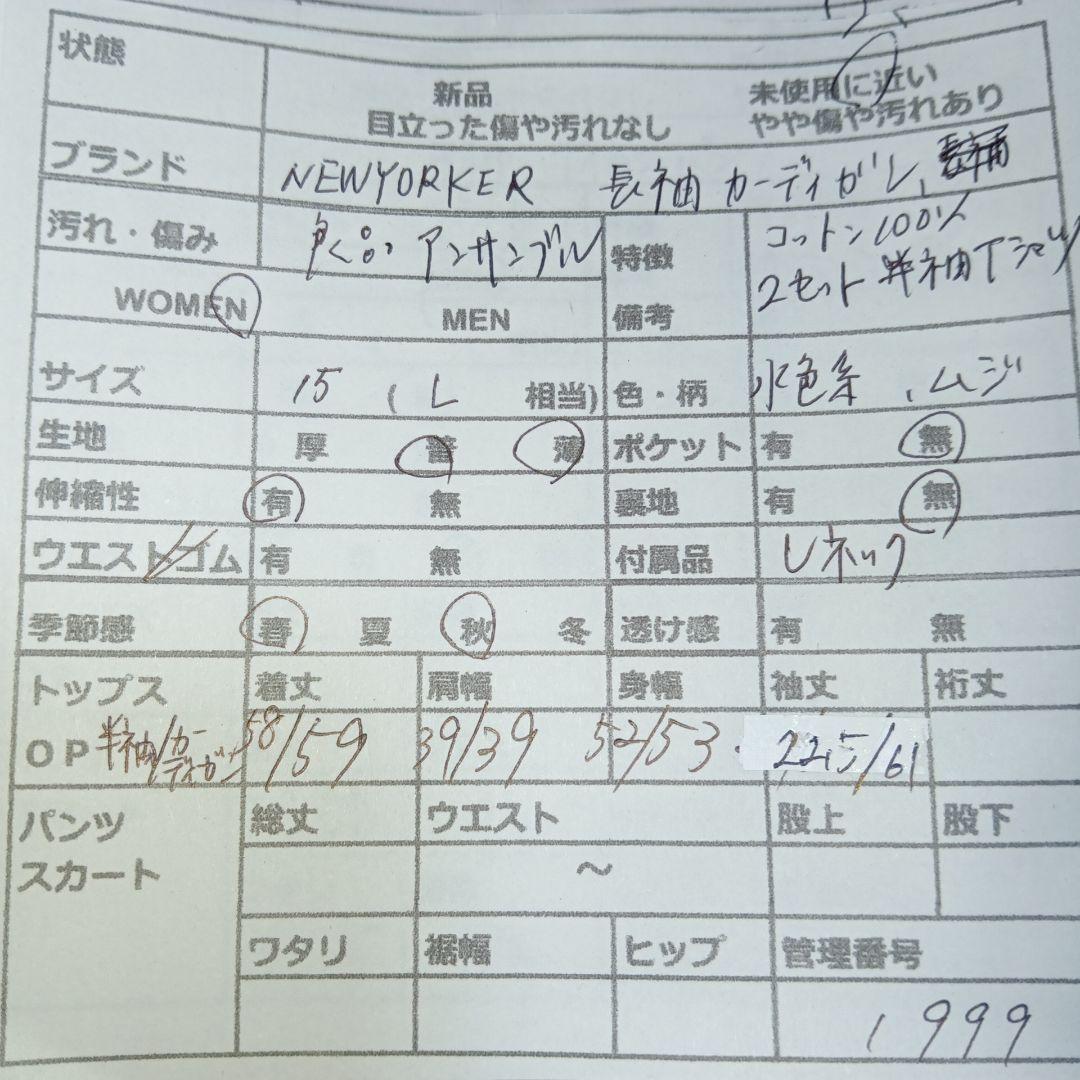 状態
新品 未使用に近い
目立った傷や汚れなし やや傷や汚れあり
ブランド NEWYORKER 長袖 カーディガン、
汚れ・傷み アンサンブル 特徴 コットン100%
2セット 半袖Tシャツ
WOMEN MEN 備考
サイズ 15 ( L 相当) 色・柄 水色系、ムジ
生地 厚 普 薄 ポケット 有 無
伸縮性 有 無 裏地 有 無
ウエストゴム 有 無 付属品 Uネック
季節感 春 夏 秋 冬 透け感 有 無
トップス 着丈 肩幅 身幅 袖丈 裄丈
OP 半袖/カーディガン 58/59 39/39 52/53 22.5/61
パンツ 総丈 ウエスト 股上 股下
スカート ～
ワタリ 裾幅 ヒップ 管理番号
1999